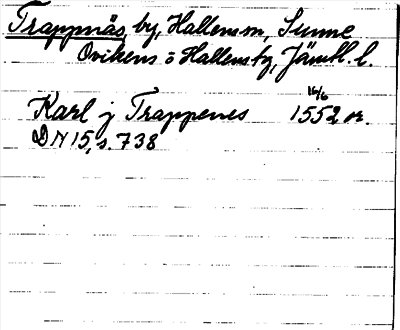 Trappnäs by, Hallens sn, Sunne
Ovikens o Hallens tg, Jämtl. l.
16/6
Karl j Trappenes 1552 or.
DN 15, s. 738